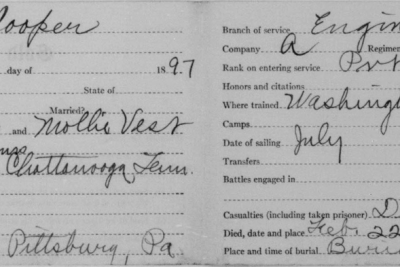 Cooper
day of 1897
State of
Married?
and Mollie Vest
Chattanooga Tenn.
Pittsburg, Pa
Branch of service Engin
Company A Regimen
Rank on entering service Pvt
Honors and citations
Where trained Washingt
Camps
Date of sailing July
Transfers
Battles engaged in
Casualties (including taken prisoner) D
Died, date and place Feb. 22
Place and time of burial Buri